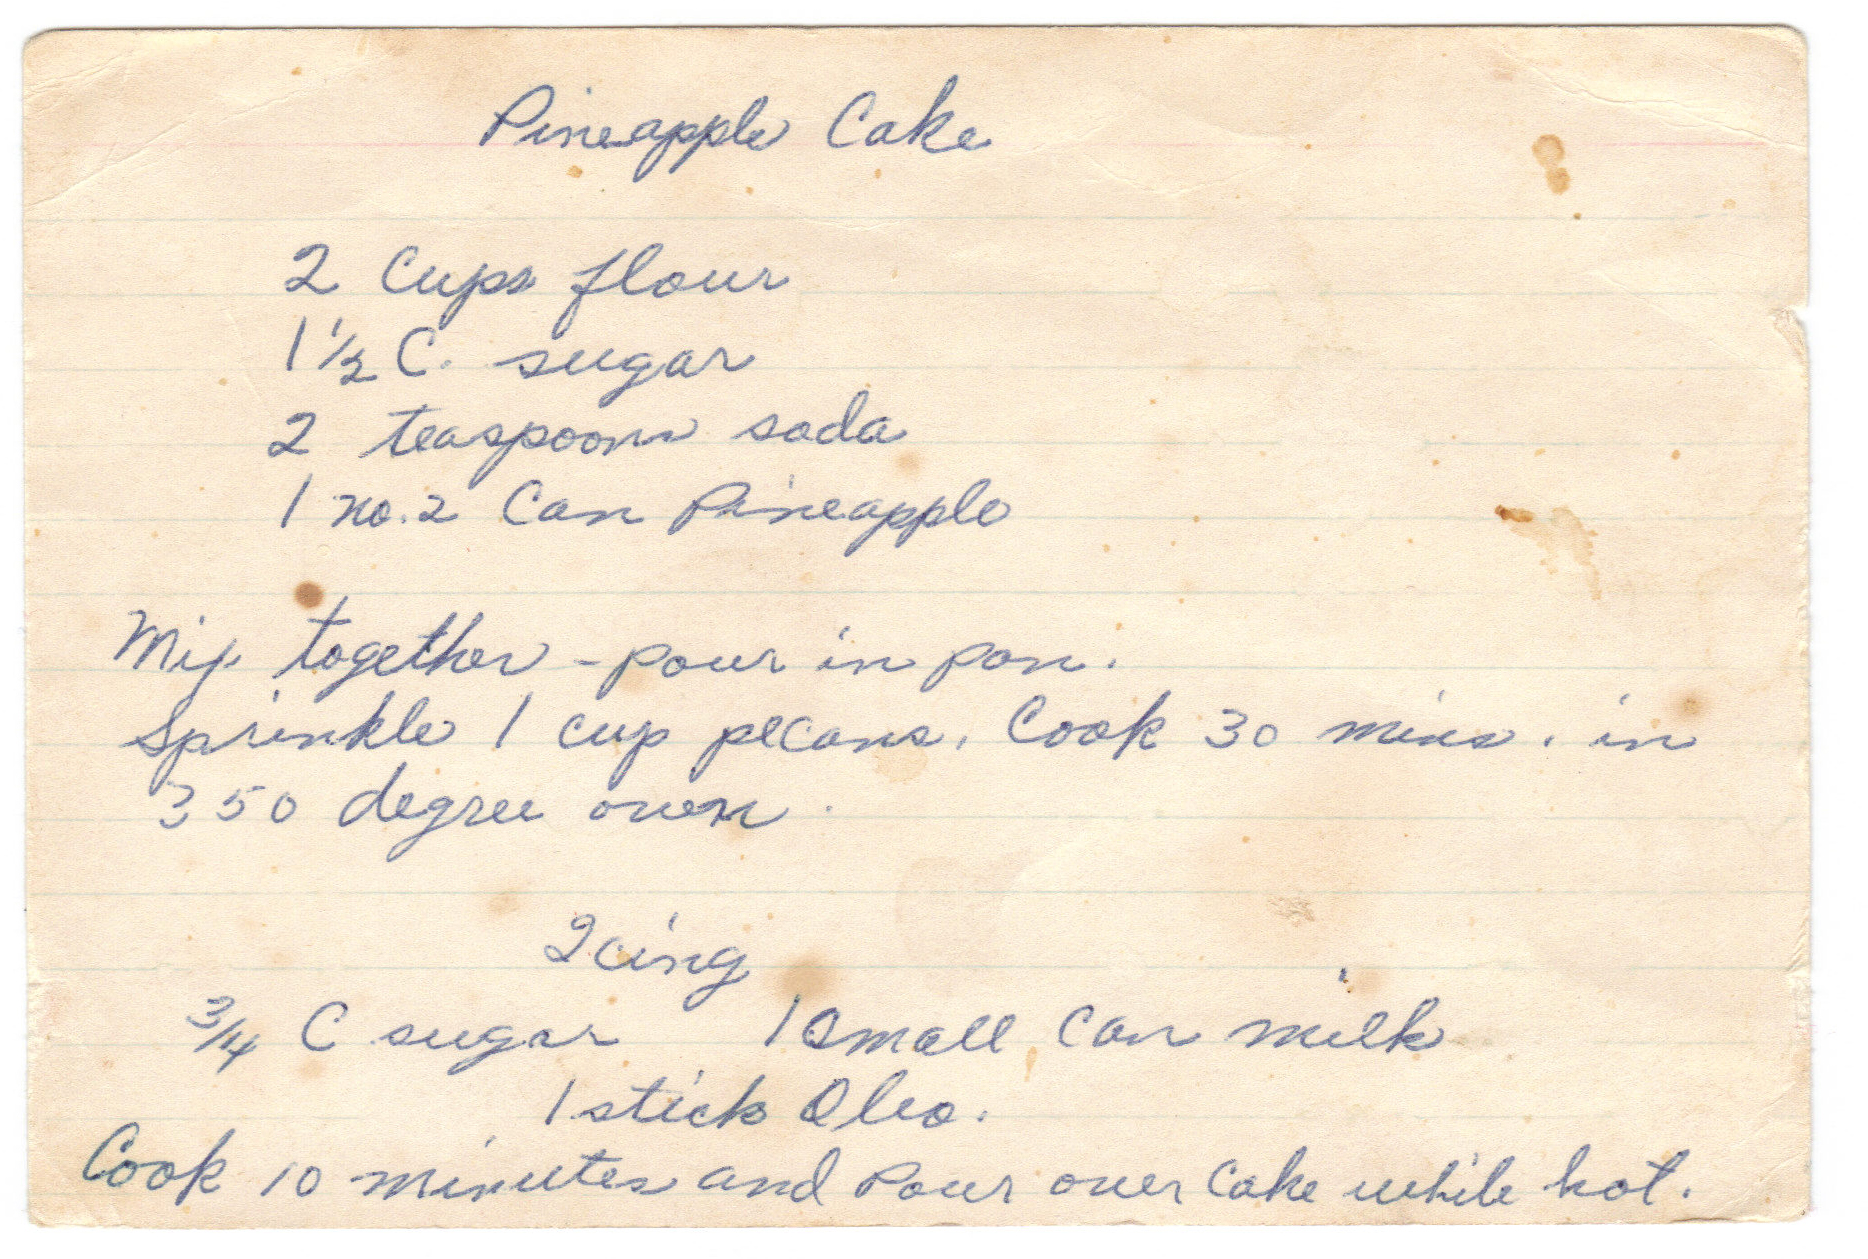 Pineapple Cake
2 Cups flour
1 1/2 C. sugar
2 teaspoons soda
1 no. 2 Can Pineapple
Mix together - pour in pan.
Sprinkle 1 cup pecans. Cook 30 mins. in
350 degree oven.
Icing
3/4 C sugar 1 small Can milk
1 stick Oleo.
Cook 10 minutes and Pour over Cake while hot.